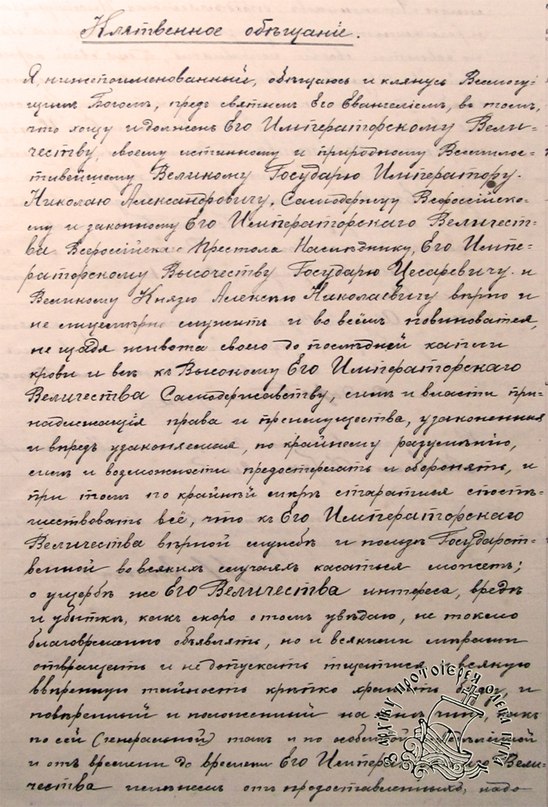 Клятвенное обѣщаніе.
Я, нижепоименованный, обѣщаюсь и клянусь Всемогу-
щимъ Богомъ, предъ святымъ Его Евангеліемъ, въ томъ,
что хощу и долженъ Его Императорскому Вели-
честву, своему истинному и природному Всемилос-
тивѣйшему Великому Государю Императору
Николаю Александровичу, Самодержцу Всероссійско-
му и законному Его Императорскаго Величест-
ва Всероссійскаго Престола Наслѣднику, Его Импе-
раторскому Высочеству Государю Цесаревичу и
Великому Князю Алексѣю Николаевичу вѣрно и
не лицемѣрно служить и во всёмъ повиноватся,
не щадя живота своего до послѣдней капли
крови и все къ Высокому Его Императорскаго
Величества Самодержавству, силѣ и власти при-
надлежащія права и преимущества, узаконенныя
и впредь узаконяемыя, по крайнему разумѣнію,
силѣ и возможности предостерегать и оборонять, и
при томъ по крайней мѣрѣ старатися споспѣ-
шествовать всё, что къ Его Императорскаго
Величества вѣрной службѣ и пользѣ Государст-
венной во всякихъ случаяхъ касатися можетъ;
о ущербѣ же Его Величества интереса, вредѣ
и убыткѣ, какъ скоро о томъ увѣдаю, не токмо
благовременно объявлять, но и всякими мѣрами
отвращать и не допускать тщатися и всякую
ввѣренную тайность крѣпко хранить буду, и
повѣренный и положенный на мнѣ чинъ, какъ
по сей (генеральной) такъ и по особенной
и отъ времени до времени Его Императорскаго Вели-
чества именемъ отъ предоставленныхъ надо
В ЛАВКУ ПРОТОІЕРЕЯ